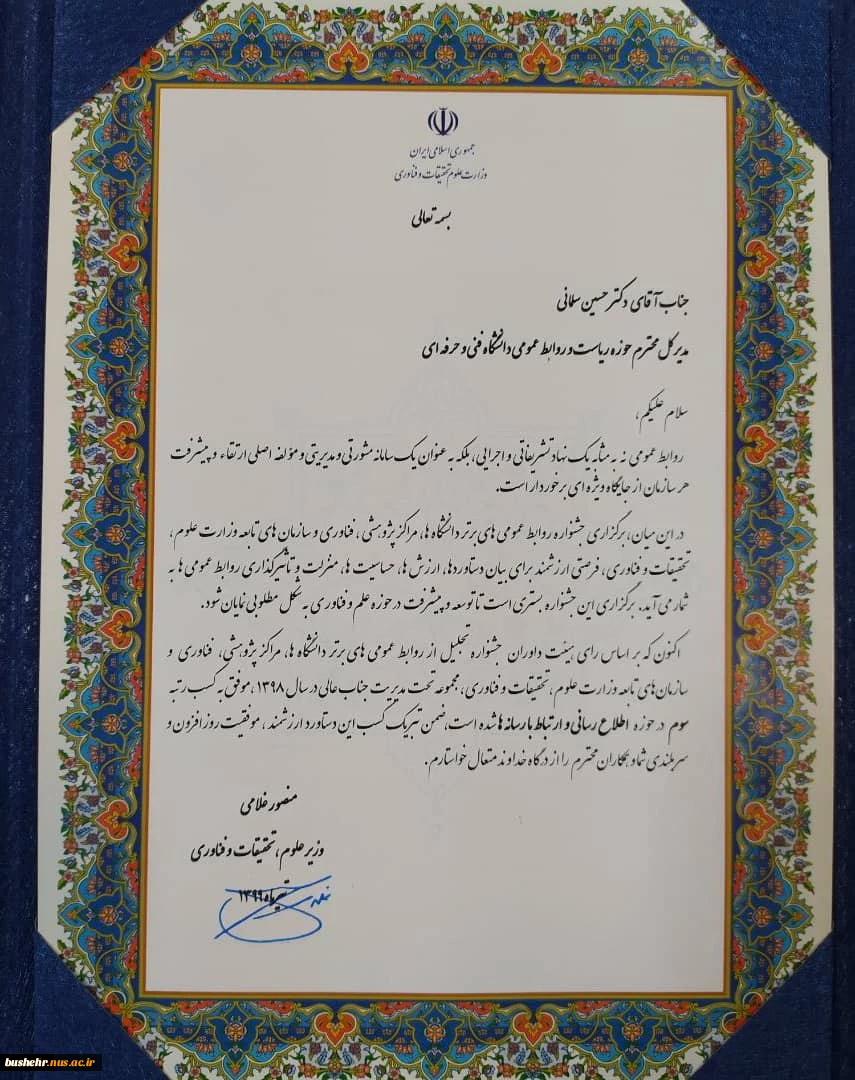 جمهوری اسلامی ایران
وزارت علوم تحقیقات و فناوری
بسمه تعالی
جناب آقای دکتر حسین سلمانی
مدیرکل محترم حوزه ریاست و روابط عمومی دانشگاه فنی و حرفه ای
سلام علیکم،
روابط عمومی نه به مثابه یک نهاد تشریفاتی و اجرایی، بلکه به عنوان یک سامانه مشورتی و مدیریتی و مؤلفه اصلی ارتقاء و پیشرفت
هر سازمان از جایگاه ویژه ای برخوردار است.
در این میان، برگزاری جشنواره روابط عمومی های برتر دانشگاه ها، مراکز پژوهشی، فناوری و سازمان های تابعه وزارت علوم،
تحقیقات و فناوری، فرصتی ارزشمند برای بیان دستاوردها، ارزش ها، حساسیت ها، منزلت و تأثیرگذاری روابط عمومی ها به
شمار می آید. برگزاری این جشنواره بستری است تا توسعه و پیشرفت در حوزه علم و فناوری به شکل مطلوبی نمایان شود.
اکنون که بر اساس رای هیئت داوران جشنواره تجلیل از روابط عمومی های برتر دانشگاه ها، مراکز پژوهشی، فناوری و
سازمان های تابعه وزارت علوم، تحقیقات و فناوری، مجموعه تحت مدیریت جناب عالی در سال ۱۳۹۸، موفق به کسب رتبه
سوم در حوزه اطلاع رسانی و ارتباط با رسانه ها شده است، ضمن تبریک کسب این دستاورد ارزشمند، موفقیت روزافزون و
سربلندی شما و همکاران محترم را از درگاه خداوند متعال خواستارم.
منصور غلامی
وزیر علوم، تحقیقات و فناوری
تیرماه ۱۳۹۹
bushehr.nus.ac.ir